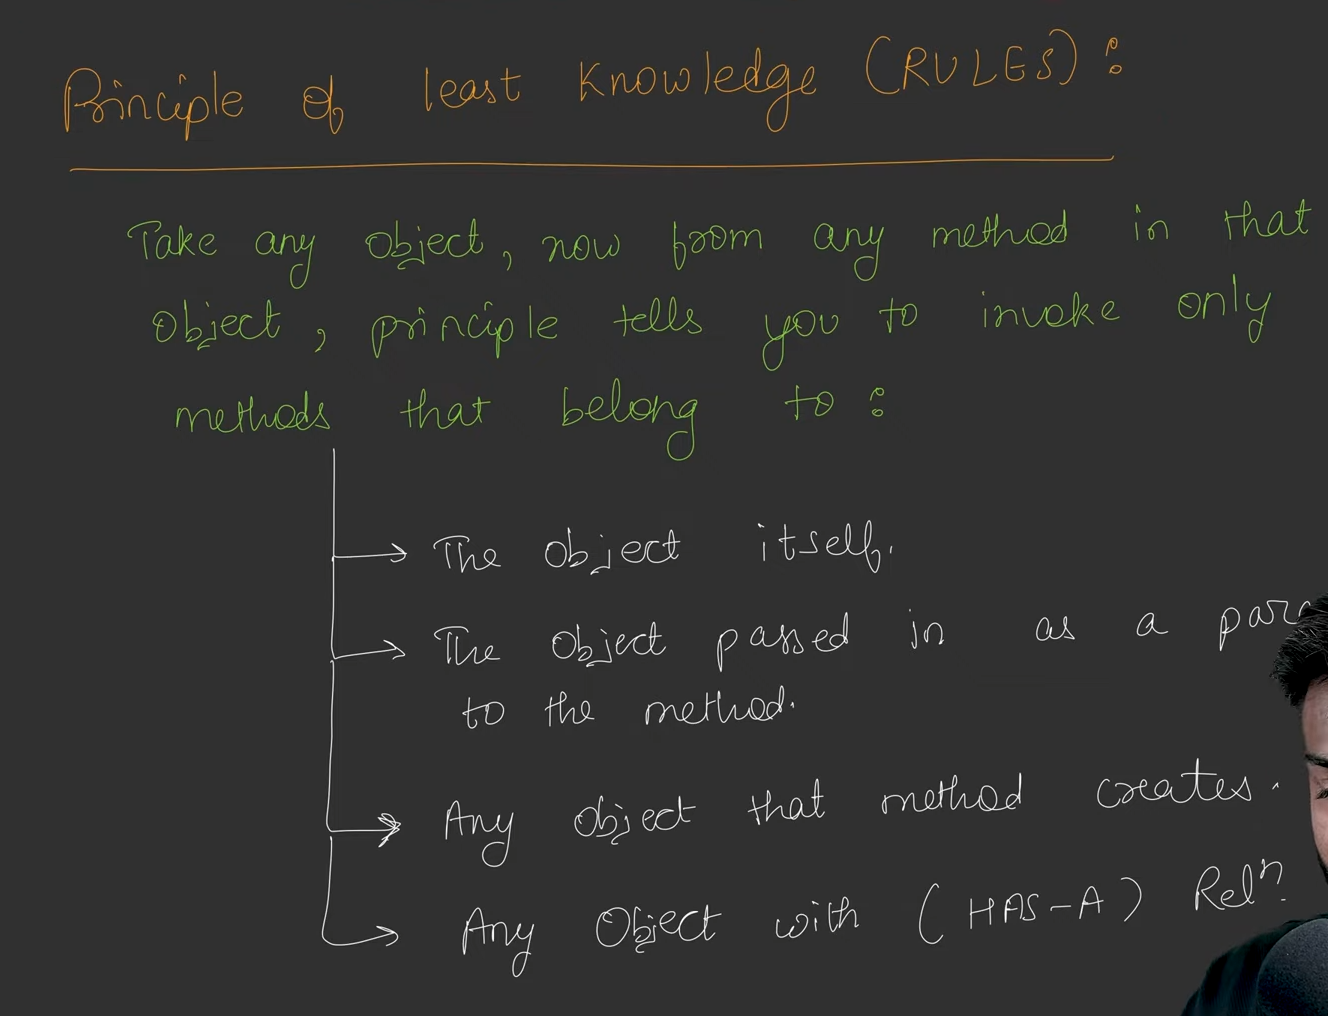 Principle of least Knowledge (RULES) :
Take any object, now from any method in that
object, principle tells you to invoke only
methods that belong to :
The object itself.
The object passed in as a
to the method.
Any object that method creates.
Any Object with (HAS-A) Relⁿ.